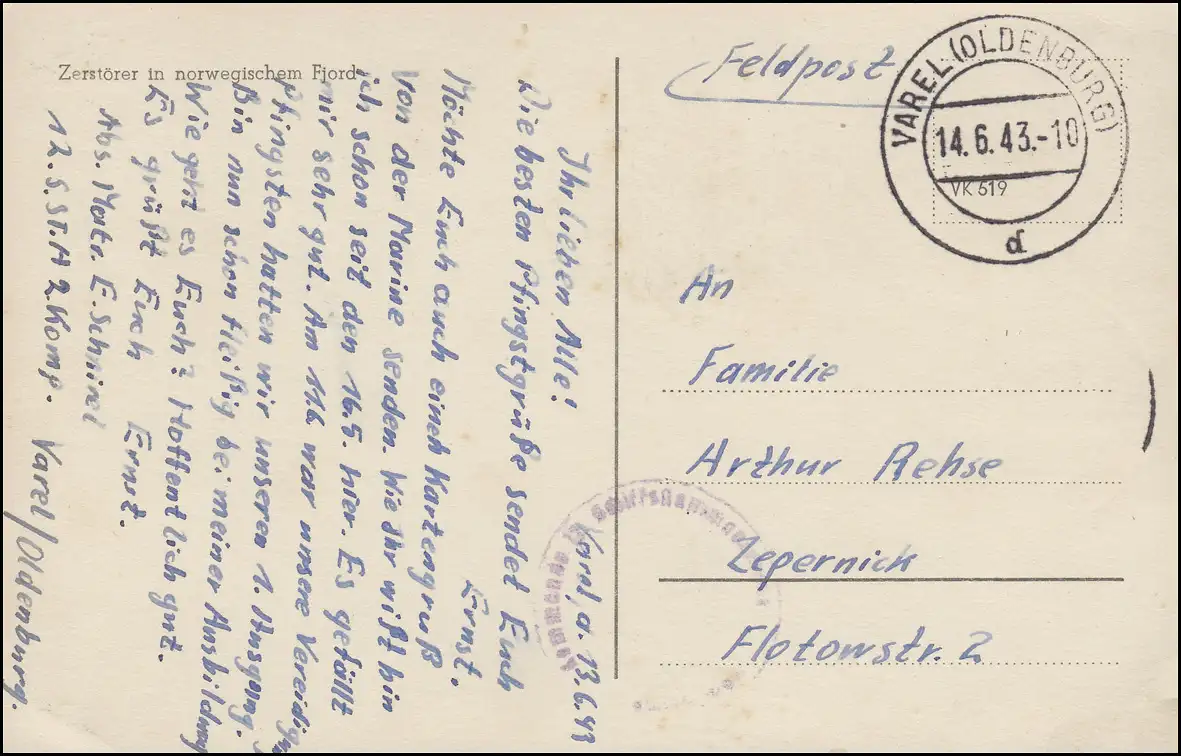 Zerstörer in norwegischem Fjord
Varel, d. 13.6.43
Ihr lieben Alle!
Die besten Pfingstgrüße sendet Euch
Ernst.
Möchte Euch auch einen Kartengruß
von der Marine senden. Wie Ihr wißt bin
ich schon seit den 16.5. hier. Es gefällt
mir sehr gut. Am 11.6 war unsere Vereidig
Pfingsten hatten wir unseren 1. Ausgang.
Bin nun schon fleißig bei meiner Ausbildung
Wie geht es Euch? Hoffentlich gut.
Es grüßt Euch Ernst.
Abs. Matr. E.
12. S.St.A 2 Komp. Varel/Oldenburg.
Feldpost
VAREL (OLDENBURG)
14.6.43.-10
d
VK 519
An
Familie
Arthur Rehse
Zepernick
Flotowstr. 2